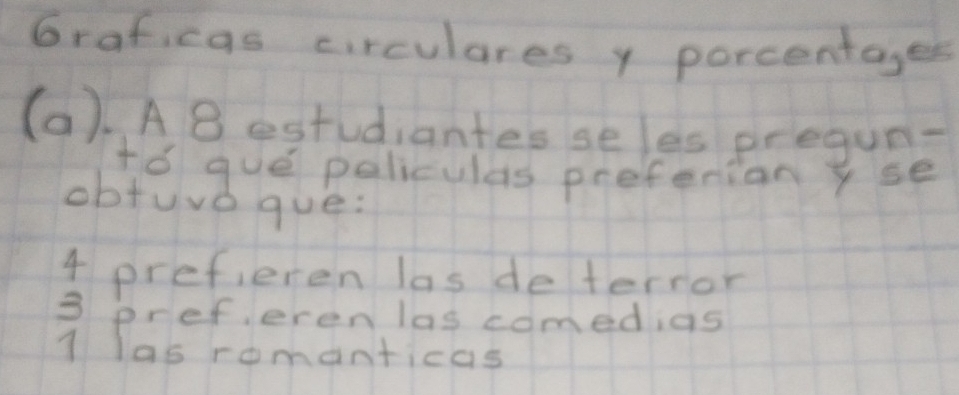 Graficas circulares y porcentajes
(a). A 8 estudiantes se les pregun-
tó qué peliculas preferian y se
obtuvo que:
4 prefieren las de terror
3 prefieren las comedias
1 las romanticas